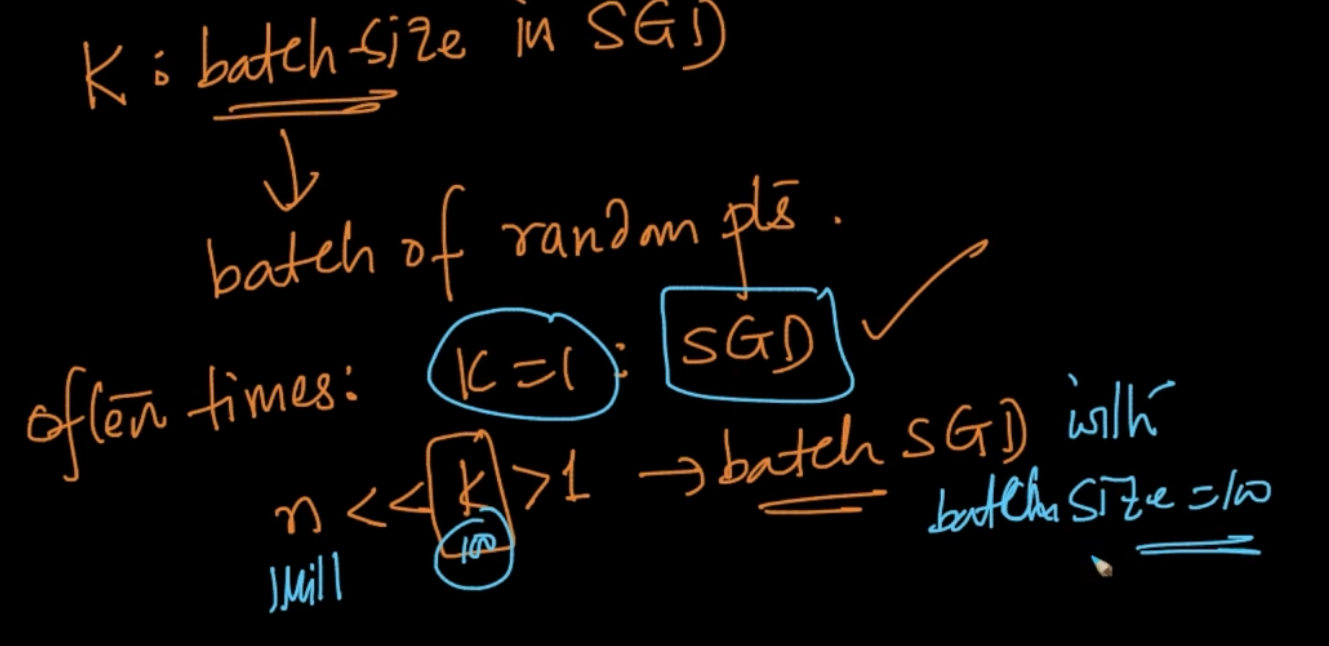 K : batch size in SGD
batch of random pts.
often times: K=1 : SGD
n << K > 1 → batch SGD with
1Mill 100 batch size = 100